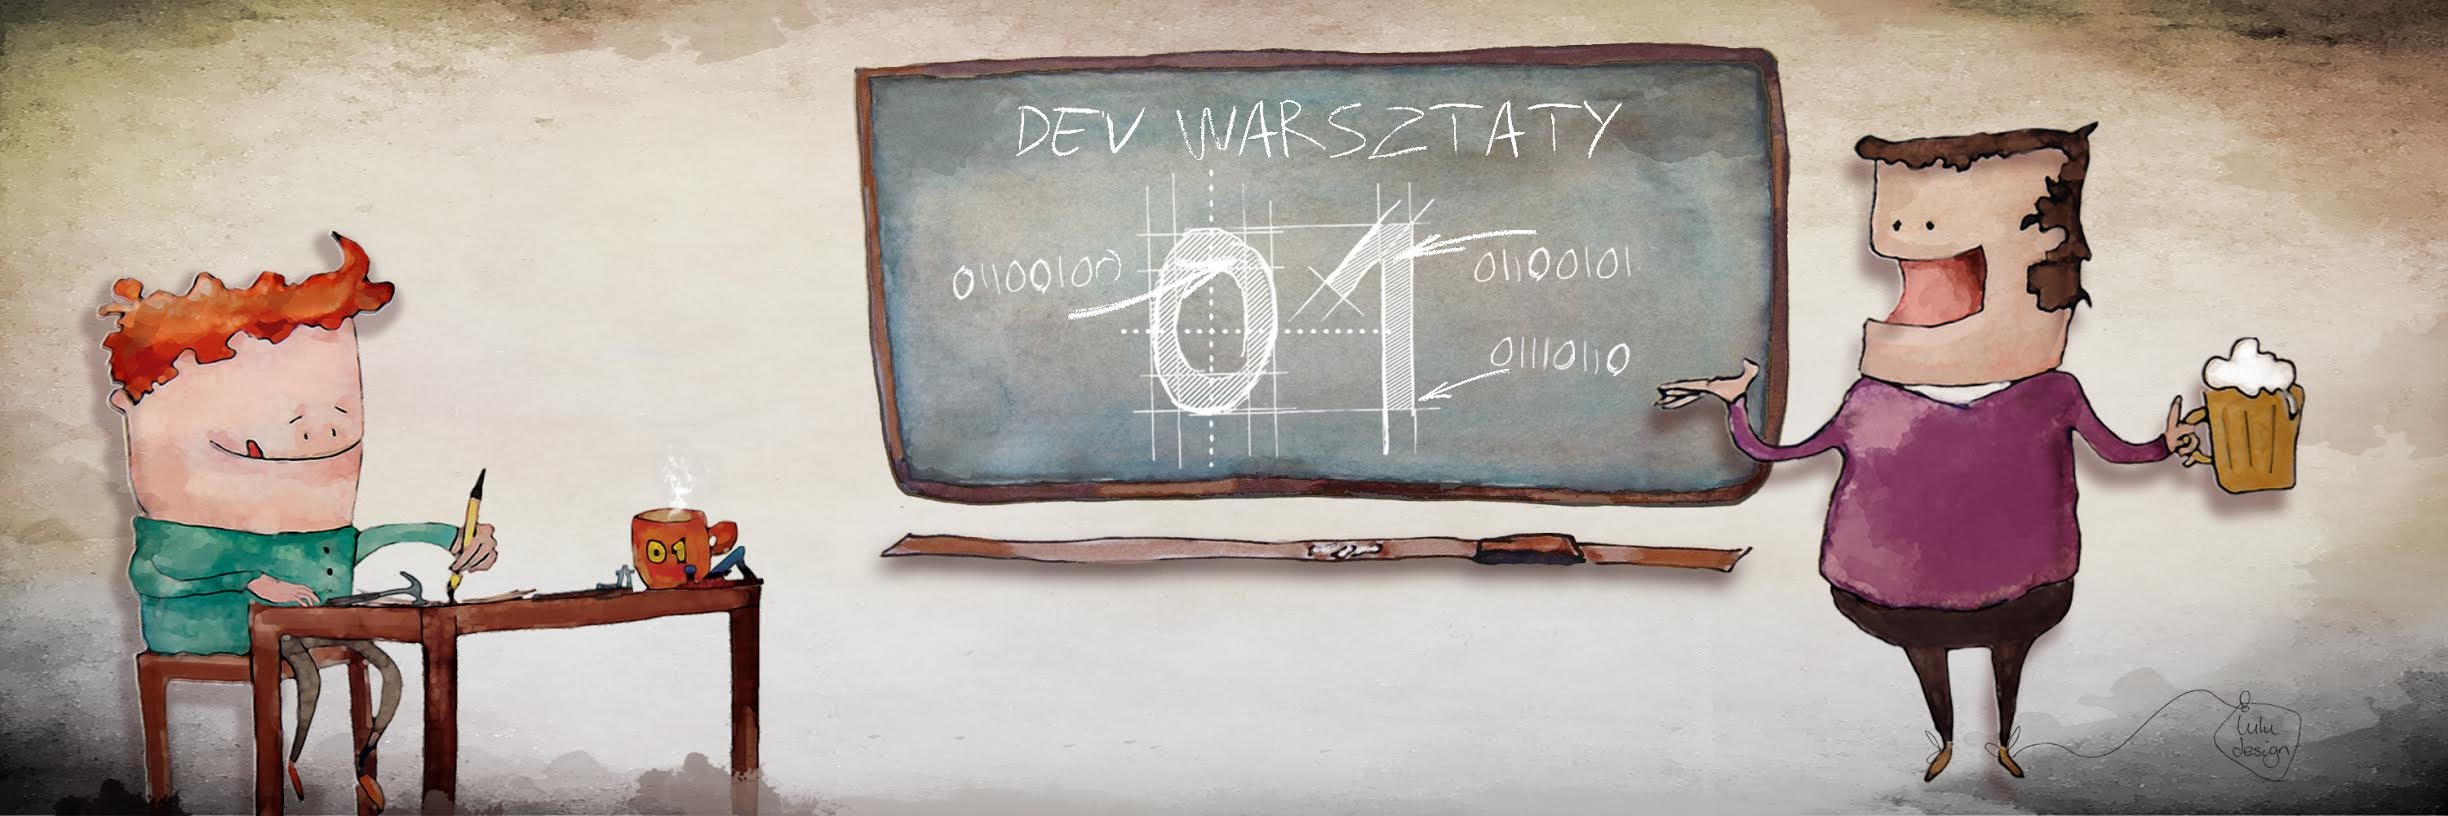 DEV WARSZTATY
01100100
01
01100101
01110110
01
lulu
design